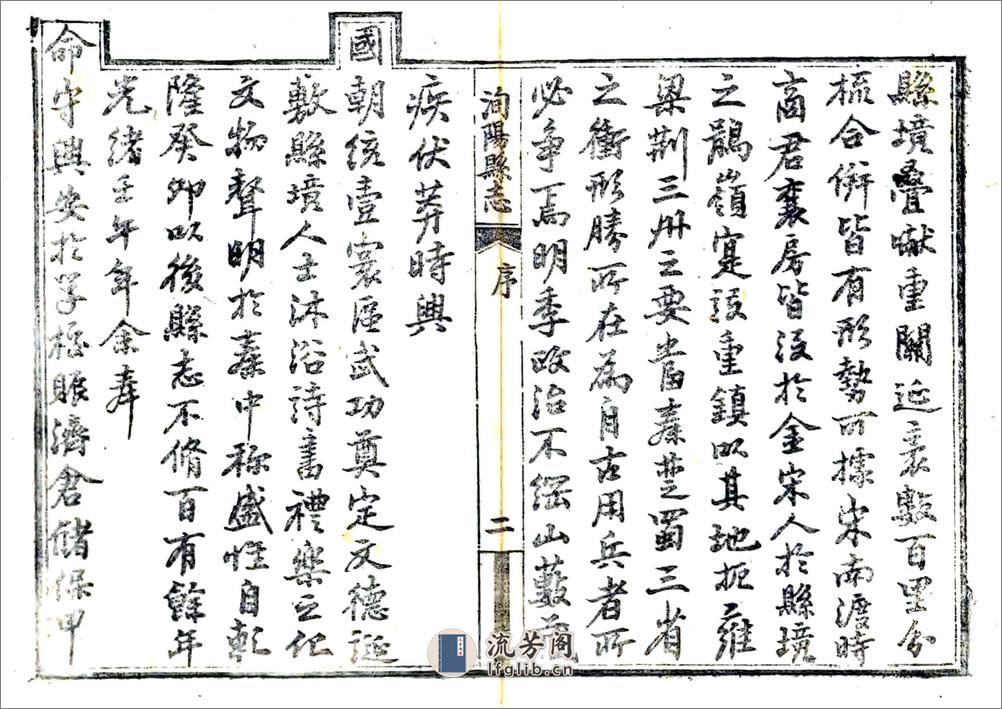 縣境疊巘重關延袤數百里分
梳合併皆有形勢可據宋南渡時
商君襄房皆沒於金宋人於縣境
之鶻嶺寔設重鎮以其地扼雍
梁荆三州之要當秦楚蜀三省
之衝形勝所在為自古用兵者所
必爭焉明季政治不綱山藪
洵陽縣志
序
二
疾伏莽時興
國朝統壹寰區武功奠定文德誕
敷縣境人士沐浴詩書禮樂之化
文物聲明於秦中称盛惟自乾
隆癸卯以後縣志不脩百有餘年
光緒壬午年余奔
命守興安於學校賑濟倉儲保甲
流芳阁
lfglib.cn